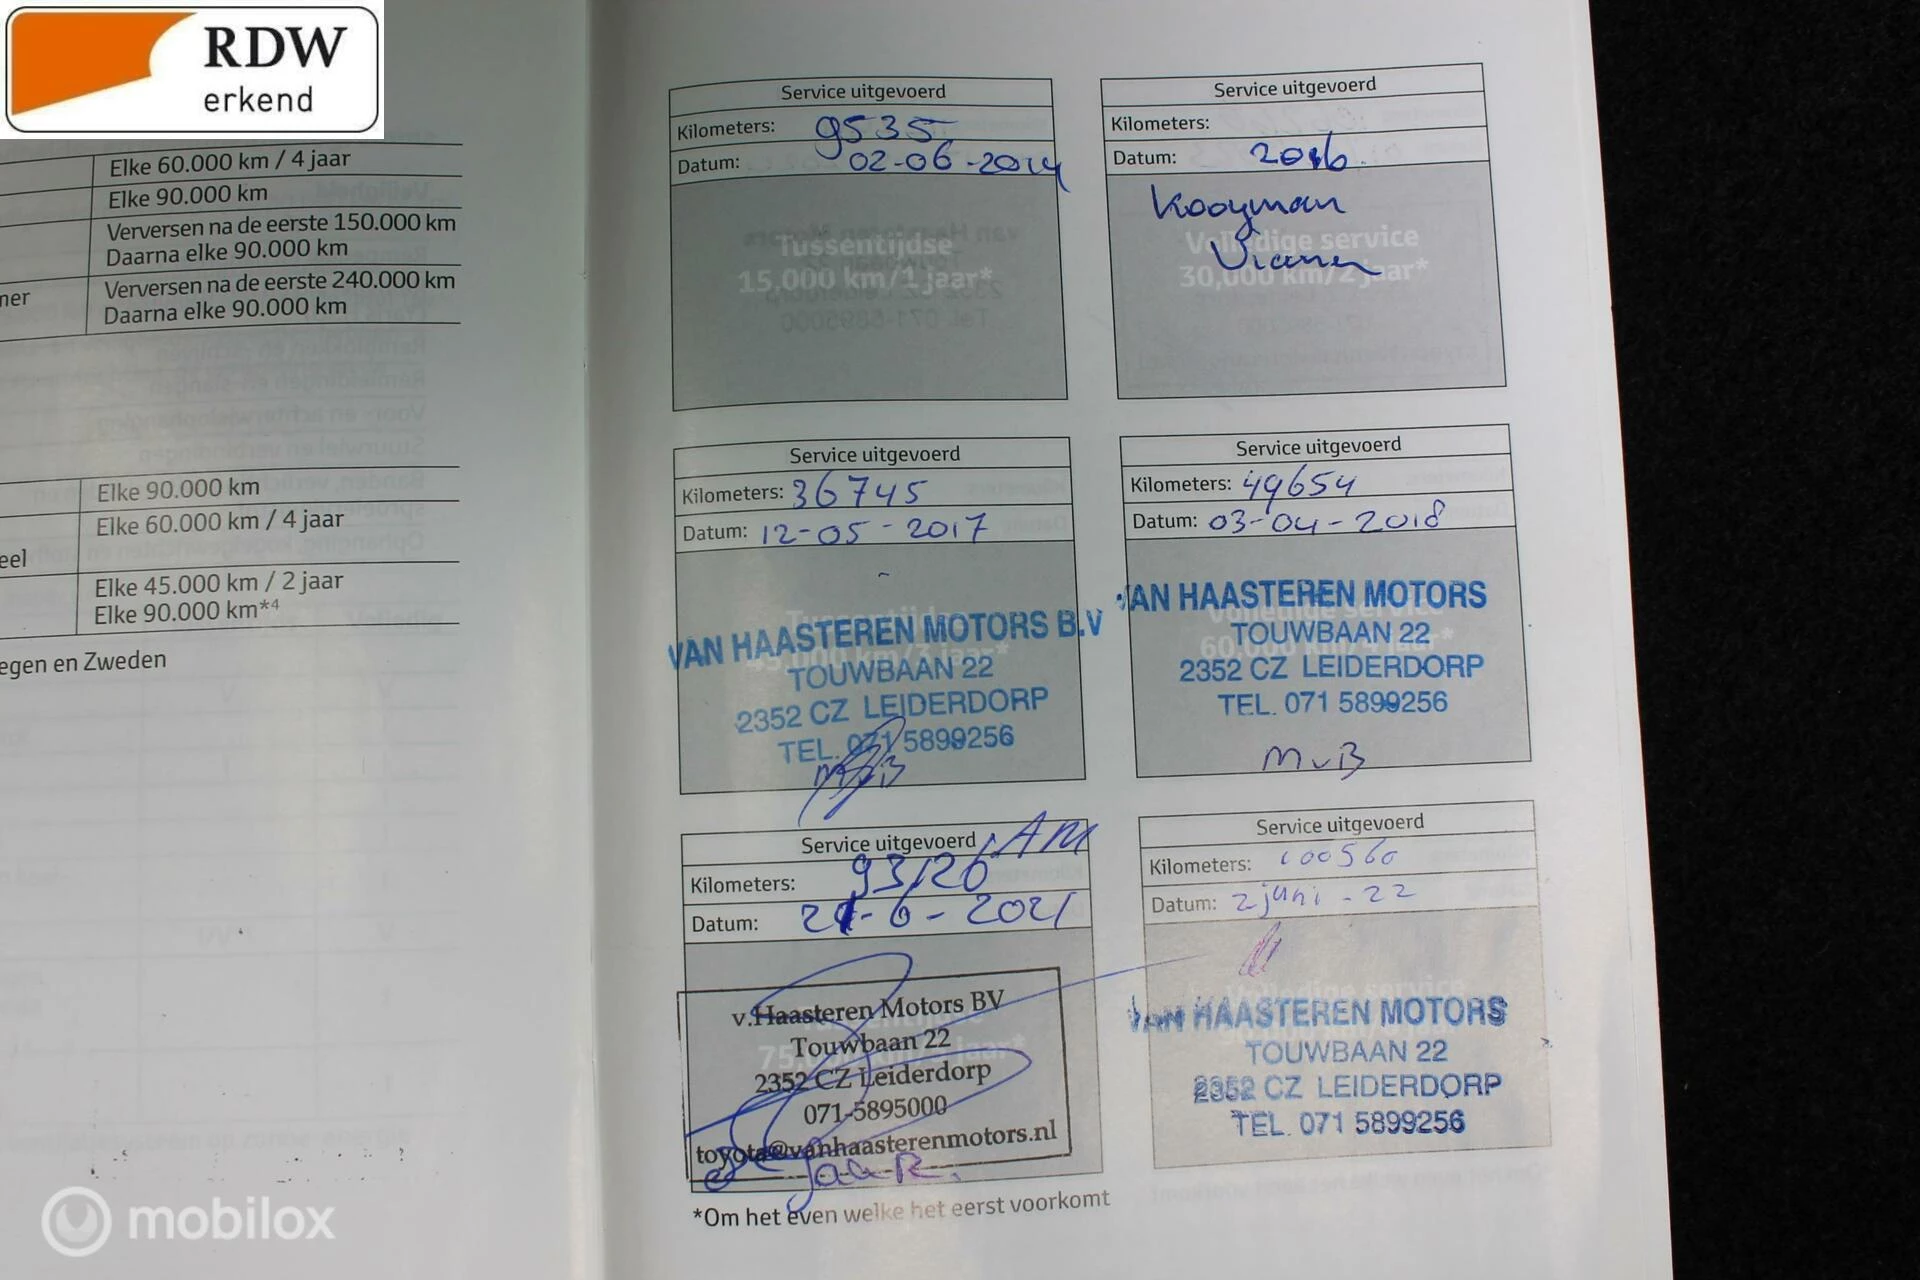 RDW
erkend
Elke 60.000 km / 4 jaar
Elke 90.000 km
Verversen na de eerste 150.000 km
Daarna elke 90.000 km
ner
Verversen na de eerste 240.000 km
Daarna elke 90.000 km
Elke 90.000 km
Elke 60.000 km / 4 jaar
eel
Elke 45.000 km / 2 jaar
Elke 90.000 km*4
egen en Zweden
Service uitgevoerd
Kilometers: 9535
Datum: 02-06-2014
Tussentijdse
15,000 km/1 jaar*
Service uitgevoerd
Kilometers:
Datum: 2016
Kooyman
Vianen
Volledige service
30,000 km/2 jaar*
Service uitgevoerd
Kilometers: 36745
Datum: 12-05-2017
Tussentijdse
45,000 km/3 jaar*
VAN HAASTEREN MOTORS B.V
TOUWBAAN 22
2352 CZ LEIDERDORP
TEL. 071 5899256
MvB
Service uitgevoerd
Kilometers: 49654
Datum: 03-04-2018
Volledige service
60,000 km/4 jaar*
VAN HAASTEREN MOTORS
TOUWBAAN 22
2352 CZ LEIDERDORP
TEL. 071 5899256
MvB
Service uitgevoerd
Kilometers: 93126
Datum: 21-6-2021
v.Haasteren Motors BV
Touwbaan 22
2352 CZ Leiderdorp
071-5895000
toyota@vanhaasterenmotors.nl
Service uitgevoerd
Kilometers: 100560
Datum: 2 juni - 22
VAN HAASTEREN MOTORS
TOUWBAAN 22
2352 CZ LEIDERDORP
TEL. 071 5899256
*Om het even welke het eerst voorkomt
mobilox